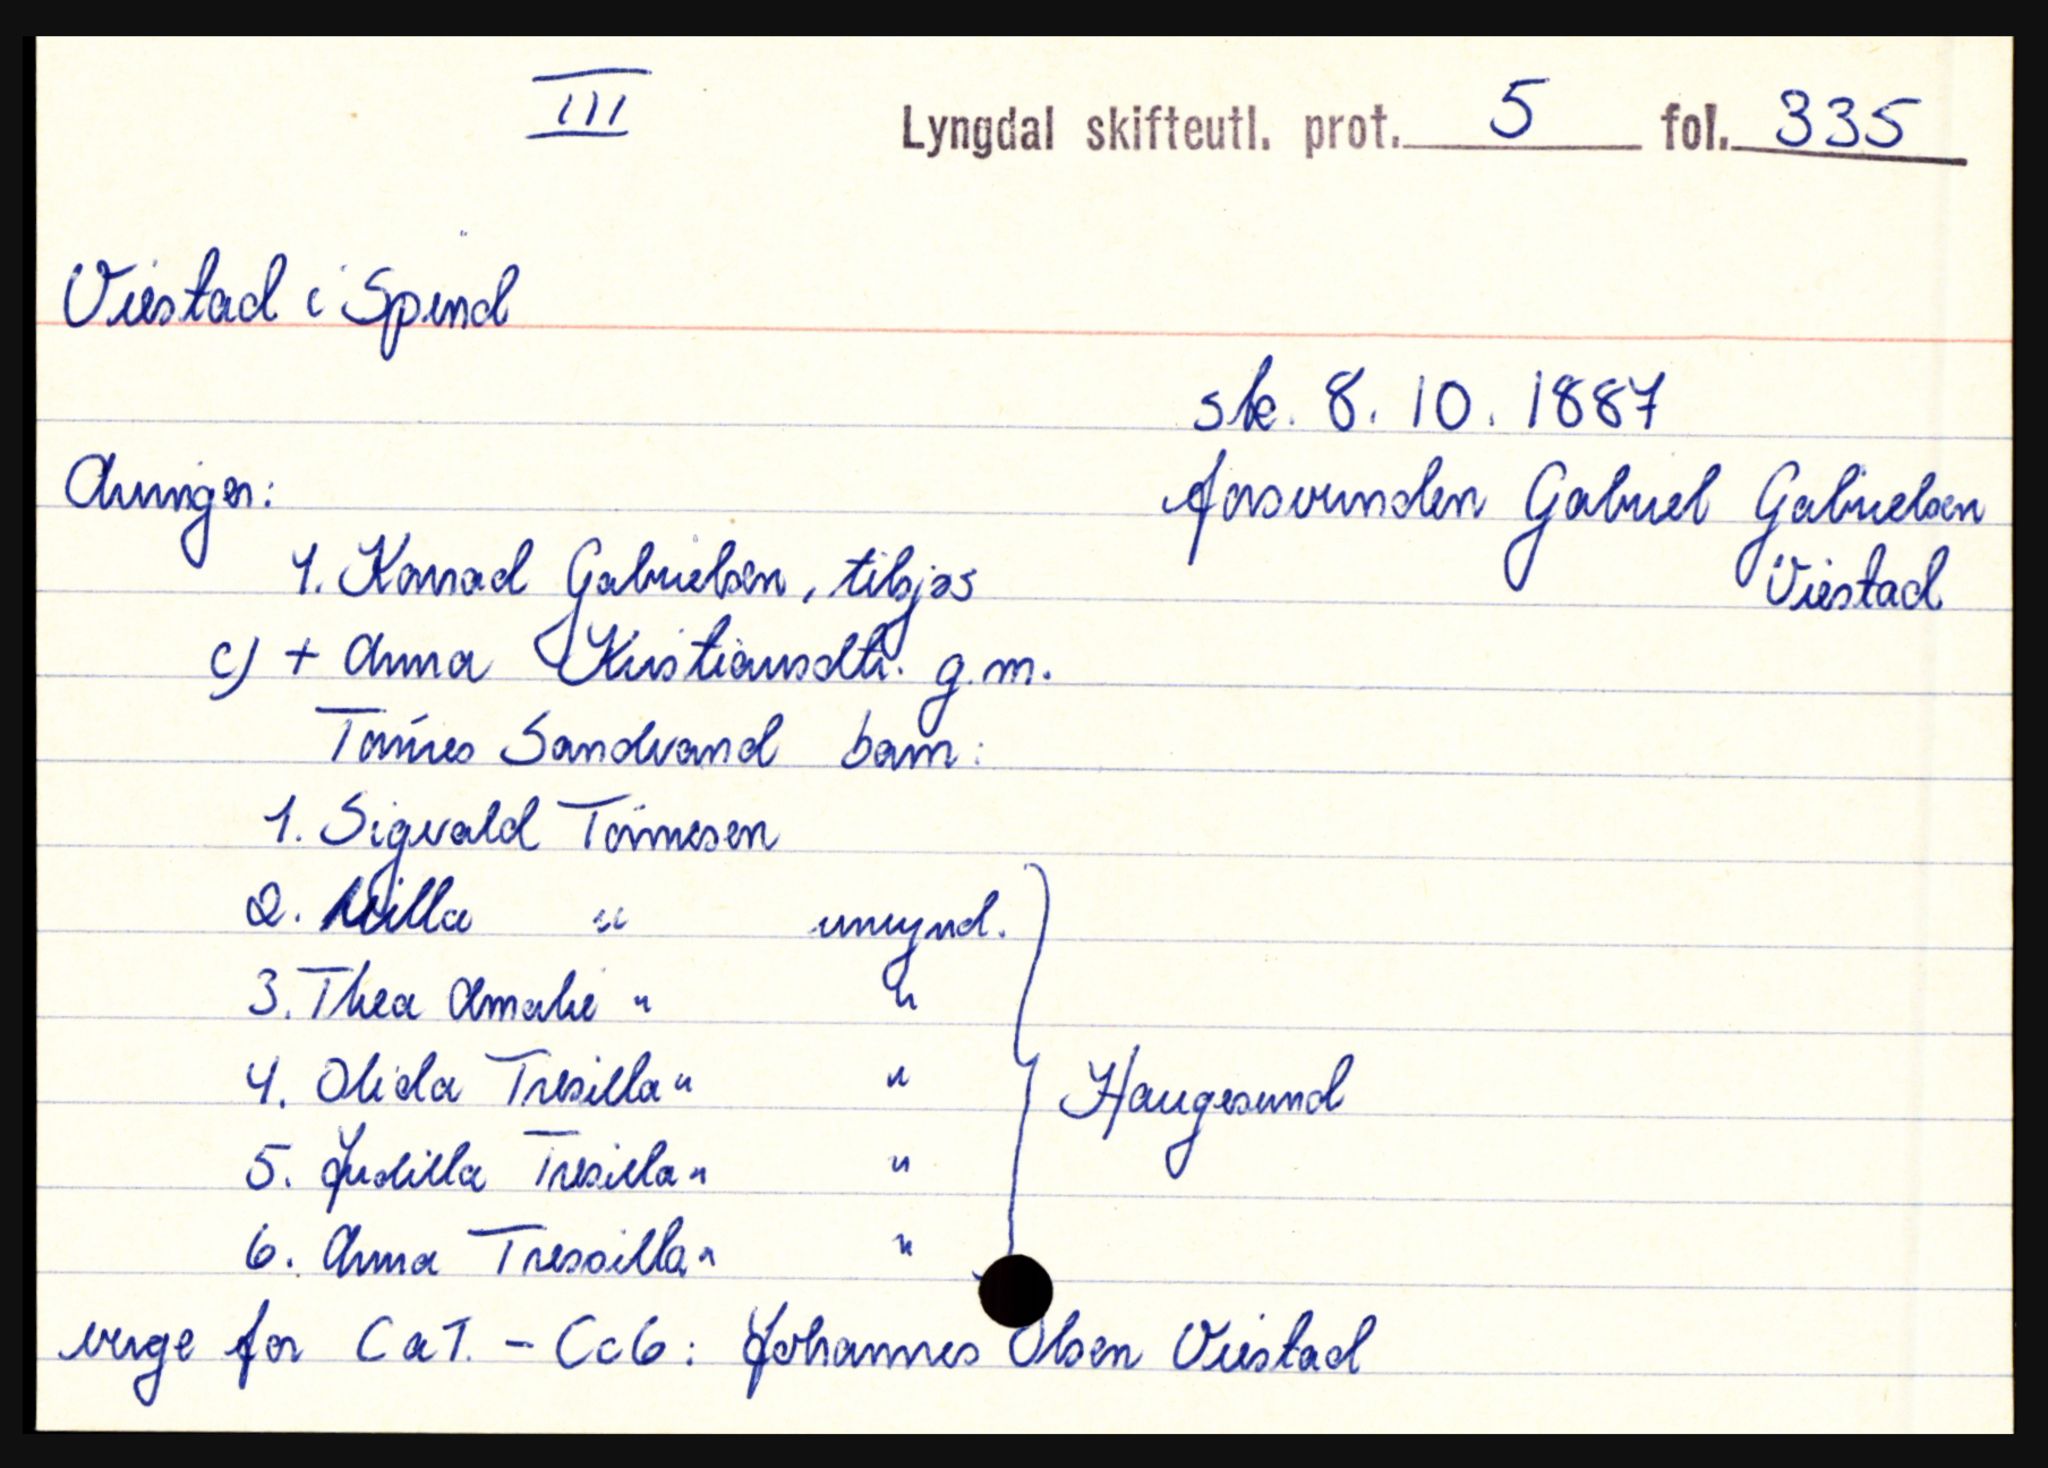 III
Lyngdal skifteutl. prot. 5 fol. 335
Viestad i Spind
sk. 8. 10. 1887
Arvinger:
forsvunden Gabriel Gabrielsen
Viestad
1. Konrad Gabrielsen, tilsjøs
c) + Anna Kristiansdtr. g.m.
Tønnes Sandvand barn:
1. Sigvald Tønnesen
2. Milla " umynd.
3. Thea Amalie " "
4. Olida Tresilla " "
Haugesund
5. Judilla Tresilla " "
6. Anna Tressilla " "
verge for Ca1. - Cc6: Johannes Olsen Viestad